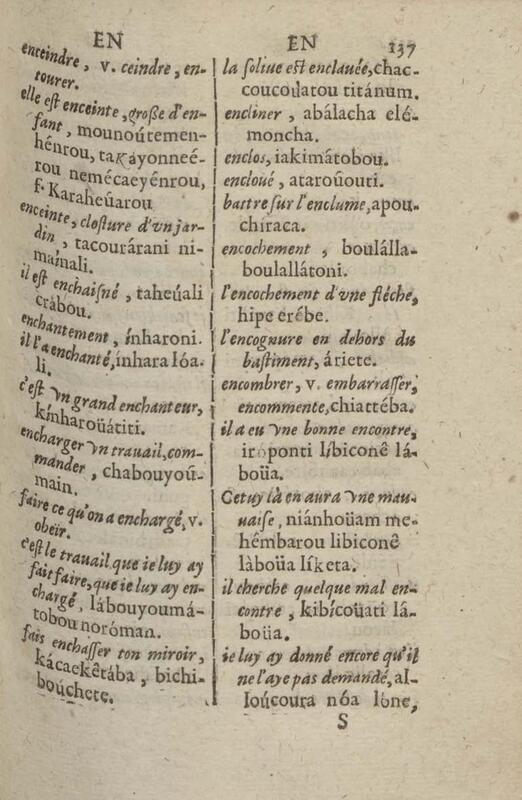 EN
enceindre, v. ceindre, en-
tourer.
elle est enceinte, große d'en-
fant, mounoútemen-
hénrou, taKáyonneé-
rou nemécaeyénrou,
f. Karaheúarou
enceinte, closture d'vn jar-
din, tacourárani ni-
mainali.
il est enchaisné, taheúali
crábou.
enchantement, ínharoni.
il l'a enchanté, ínhara lóa-
li.
c'est vn grand enchanteur,
kínharoüátiti.
encharger vn trauail, com-
mander, chabouyoú-
main.
faire ce qu'on a enchargé, v.
obeïr.
c'est le trauail que ie luy ay
fait faire, que ie luy ay en-
chargé, lábouyoumá-
tobou noróman.
fais enchasser ton miroir,
kácaekêtába, bichi-
boúchete.
EN 137
la soliue est enclauée, chac-
coucoúatou titánum.
encliner, abálacha elé-
moncha.
enclos, iakimátobou.
encloué, ataroúouti.
battre sur l'enclume, apou-
chíraca.
encochement, boulálla-
boulallátoni.
l'encochement d'vne fléche,
hipe erébe.
l'encognure en dehors du
bastiment, áriete.
encombrer, v. embarrasser,
encommente, chiattéba.
il a eu vne bonne encontre,
iróponti líbiconê lá-
boüa.
Cetuy là en aura vne mau-
uaise, niánhoüam me-
hémbarou libiconê
làboüa líketa.
il cherche quelque mal en-
contre, kibícoüati lá-
boüa.
ie luy ay donné encore qu'il
ne l'aye pas demandé, al-
loúcoura nóa lóne,
S